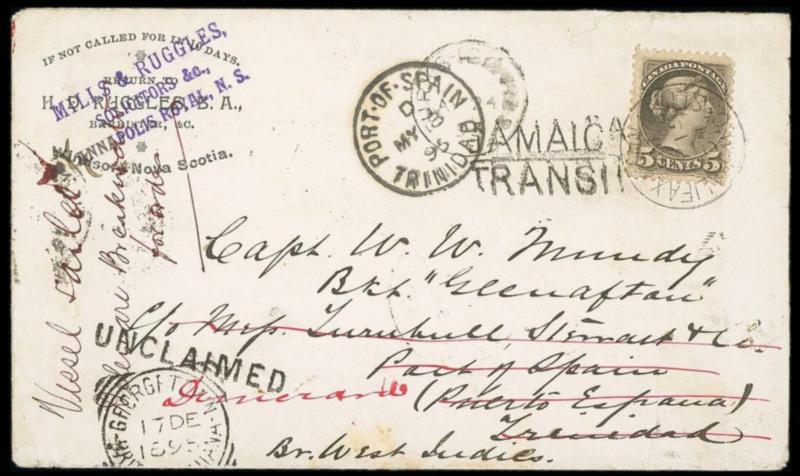 IF NOT CALLED FOR IN 10 DAYS,
RETURN TO
H. D. RUGGLES, B. A.,
BARRISTER, &C.
Nova Scotia.
MILLS & RUGGLES,
SOLICITORS &c.,
ANNAPOLIS ROYAL, N. S.
PORT-OF-SPAIN
D
MY 20
95
TRINIDAD
JAMAICA
TRANSIT
CANADA POSTAGE
5 CENTS 5
HALIFAX
Vessel sailed
before Breakwater
for orders
Capt. W. W. Mundy
Bkt "Glenafton"
C/o Mess Turnbull, Stewart & Co.
Port of Spain
Demerara (Puerto Espana)
Trinidad
Br. West Indies.
UNCLAIMED
GEORGETOWN
17 DE
1895